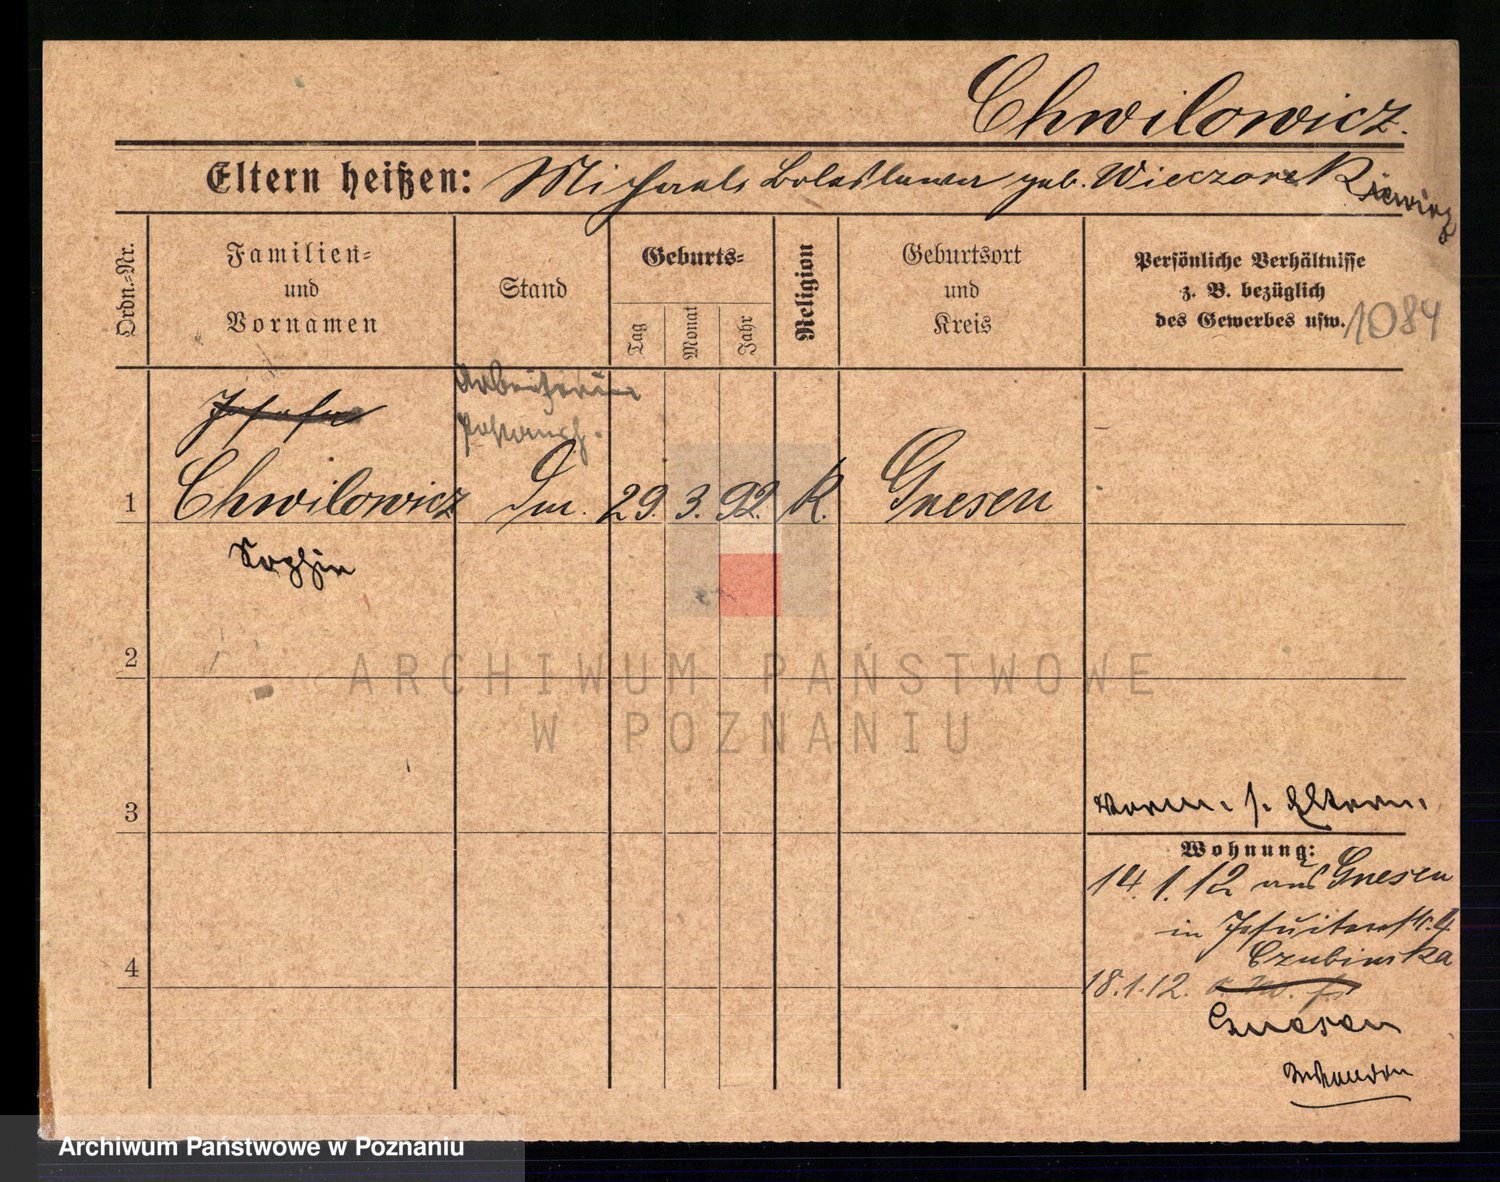 Chwilowicz.
Eltern heißen: Michael Boleslawa geb. Wieczorkiewicz
Ordn.-Nr.
Familien-
und
Vornamen
Stand
Geburts-
Tag
Monat
Jahr
Religion
Geburtsort
und
Kreis
Persönliche Verhältnisse
z. B. bezüglich
des Gewerbes usw.
1084
Arbeiterin
Josefa
1 Chwilowicz 29. 3. 92. K. Gnesen
Sophie
2
3
4
Vorm. s. Eltern.
Wohnung:
14.1.12 aus Gnesen
in Jesuitenstr. 4
Czubinska
18.1.12.
Gnesen
ARCHIWUM PAŃSTWOWE
W POZNANIU
Archiwum Państwowe w Poznaniu